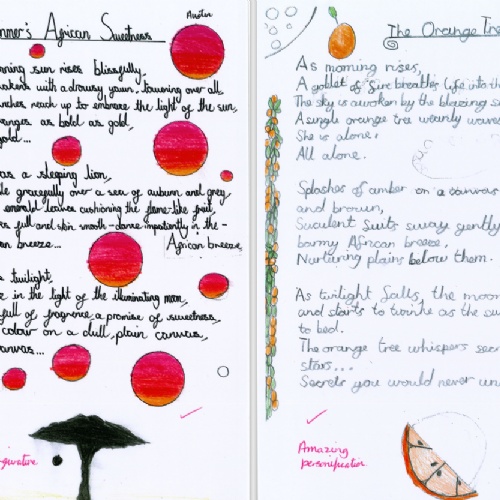 Austin
nner's African Sweetness
ning sun rises blissfully,
wakens with a drowsy yawn, towering over all
nches reach up to embrace the light of the sun,
ranges as bold as gold,
gold...
as a sleeping lion,
le gracefully over a sea of auburn and grey
emerald leaves cushioning the flame-like fruit,
full and skin smooth - dance impatiently in the -
an breeze... African breeze,
twilight,
in the light of the illuminating moon,
full of fragrance a promise of sweetness,
colour on a dull, plain canvas,
canvas...
The Orange Tre
As morning rises,
A goblet of fire breathes life into th
The sky is awoken by the blazing s
A single orange tree wearily waves
She is alone,
All alone.
Splashes of amber on a canvas
and brown,
Succulent fruits sway gently
barmy African breeze,
Nurturing plains below them.
As twilight falls, the moon
and starts to twinkle as the su
to bed.
The orange tree whispers secr
stars...
Secrets you would never un
Amazing
personification